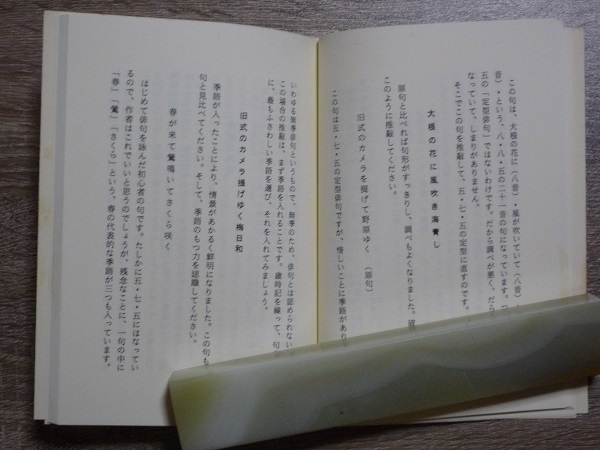 この句は、大根の花に(八音)・風が吹いていて(八音)
音)・という、八・八・五の二十一音の句になっています。つ
五の「定型俳句」ではないわけです。だから調べが悪く、だら
なっていて、しまりがありません。
そこでこの句を推敲して、五・七・五の定型に直すのです。
大根の花に風吹き海青し
原句と比べれば句形がすっきりし、調べもよくなりました。
このように推敲してください。
旧式のカメラを提げて野原ゆく (原句)
この句は五・七・五の定型俳句ですが、惜しいことに季語があり
いわゆる無季俳句というもので、無季のため、俳句とは認められない
この場合の推敲は、まず季語を入れることです。歳時記を繰って、句
に、最もふさわしい季語を選び、それを入れてみましょう。
旧式のカメラ提げゆく梅日和
季語が入ったことにより、情景があかるく鮮明になりました。この句も
句と見比べてください。そして、季語のもつ力を認識してください。
春が来て鶯鳴いてさくら咲く
はじめて俳句を詠んだ初心者の句です。たしかに五・七・五にはなってい
るので、作者はこれでいいと思うのでしょうが、残念なことに、一句の中に
「春」「鶯」「さくら」という、春の代表的な季語が三つも入っています。